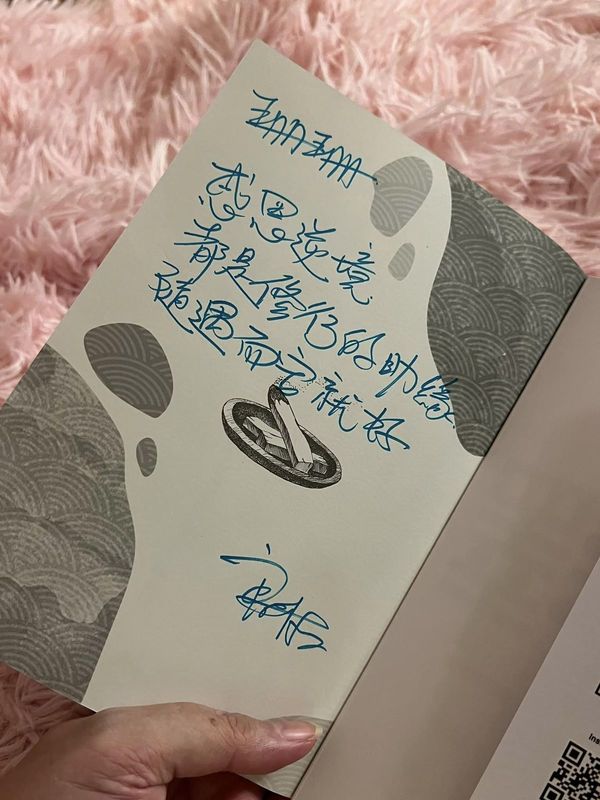 珊珊
感恩逆境
都是修行的助緣
隨遇而安就好
Ins